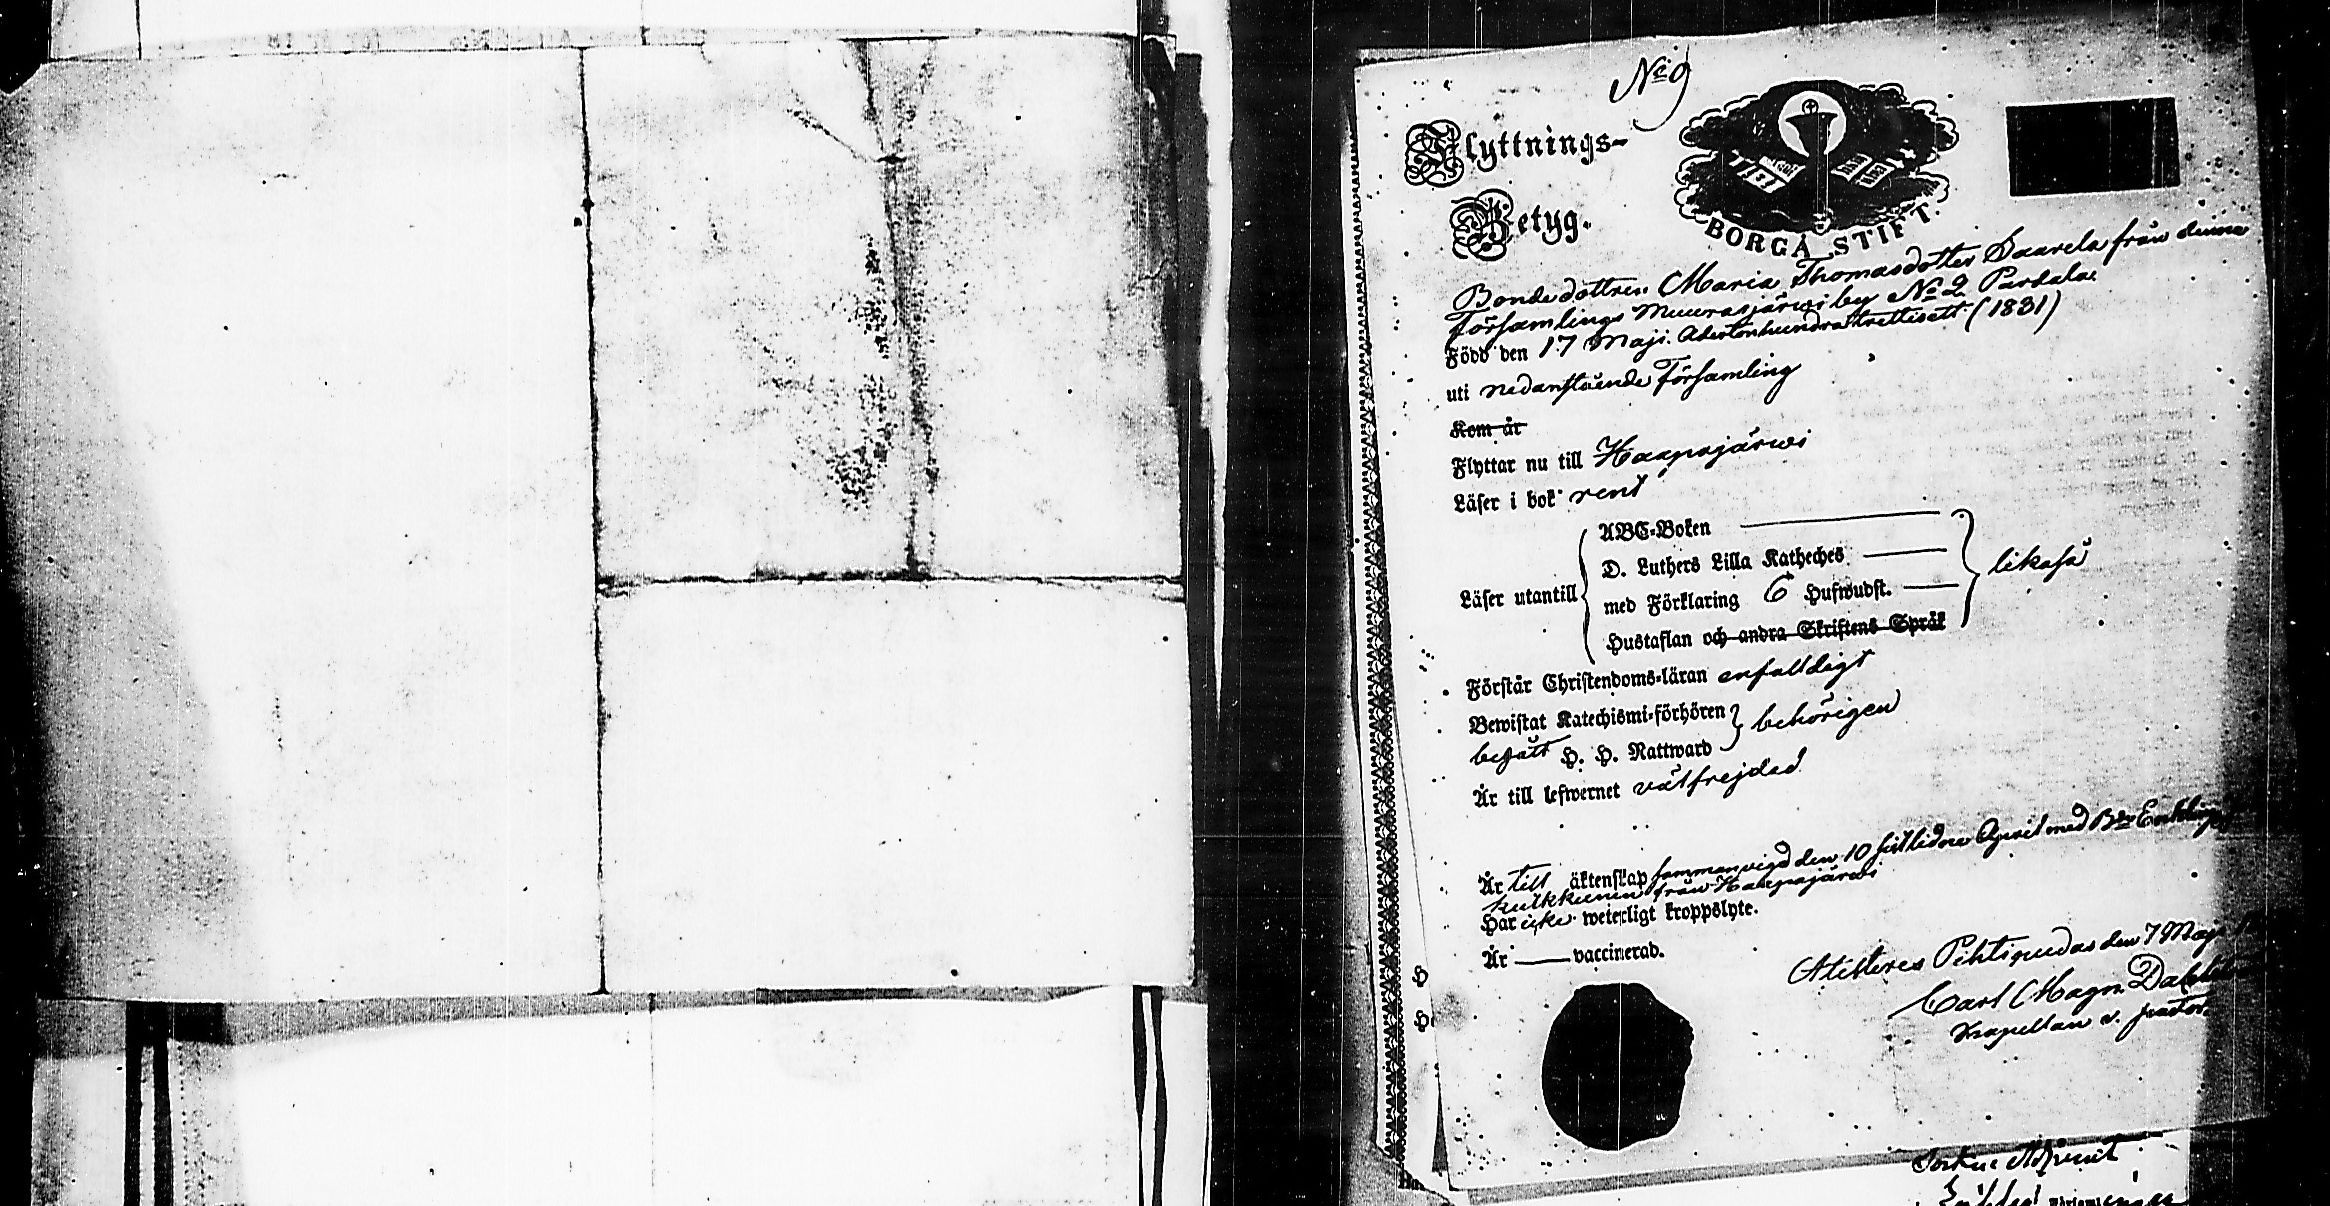 No 9
Flyttnings-
Betyg.
BORGÅ STIFT.
Bondedottren Maria Thomasdotter Saarela från denna
Församlings Muurasjärwi by No 2 Pardala
Född den 17 Maji Adertonhundratrettiett (1831)
uti nedanstående Församling
Kom år
Flyttar nu till Haapajärwi
Läser i bok rent
ABC-Boken
D. Luthers Lilla Katheches
Läser utantill med Förklaring 6 Hufwudst. likaså
Hustaflan och andra Skriftens Språk
Förstår Christendoms-läran enfaldigt
Bewistat Katechismi-förhören behörigen
begått H. H. Nattward
Är till lefwernet välfrejdad
Är till äktenskap sammanvigd den 10 sistlidne April med
från Haapajärwi
Har icke weterligt kroppslyte.
Är vaccinerad.
Attesteras Pihtipudas den 7 Maji
Carl Magn.
Kapellan v. pastor